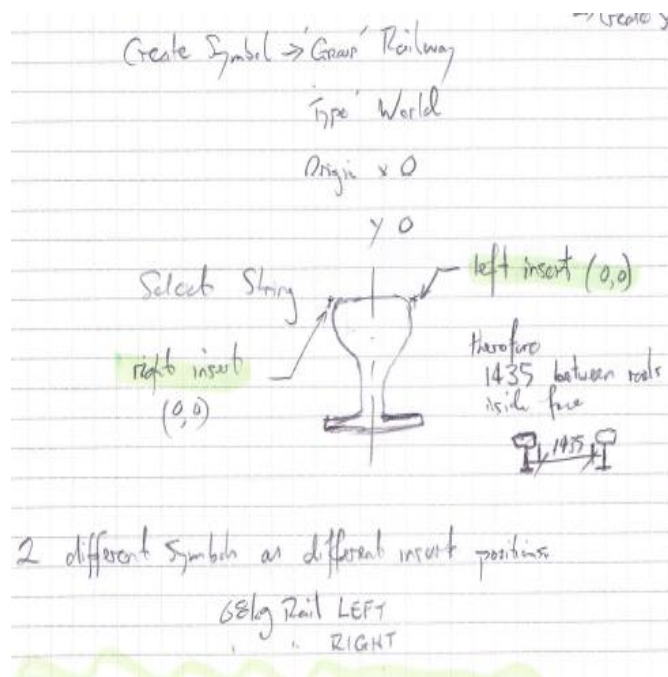 → Create S
Create Symbol → 'Group' Railway
'Type' World
Origin x 0
y 0
Select String
left insert (0,0)
right insert
(0,0)
therefore
1435 between rails
inside face
1435
2 different Symbols as different insert positions
68kg Rail LEFT
" " RIGHT